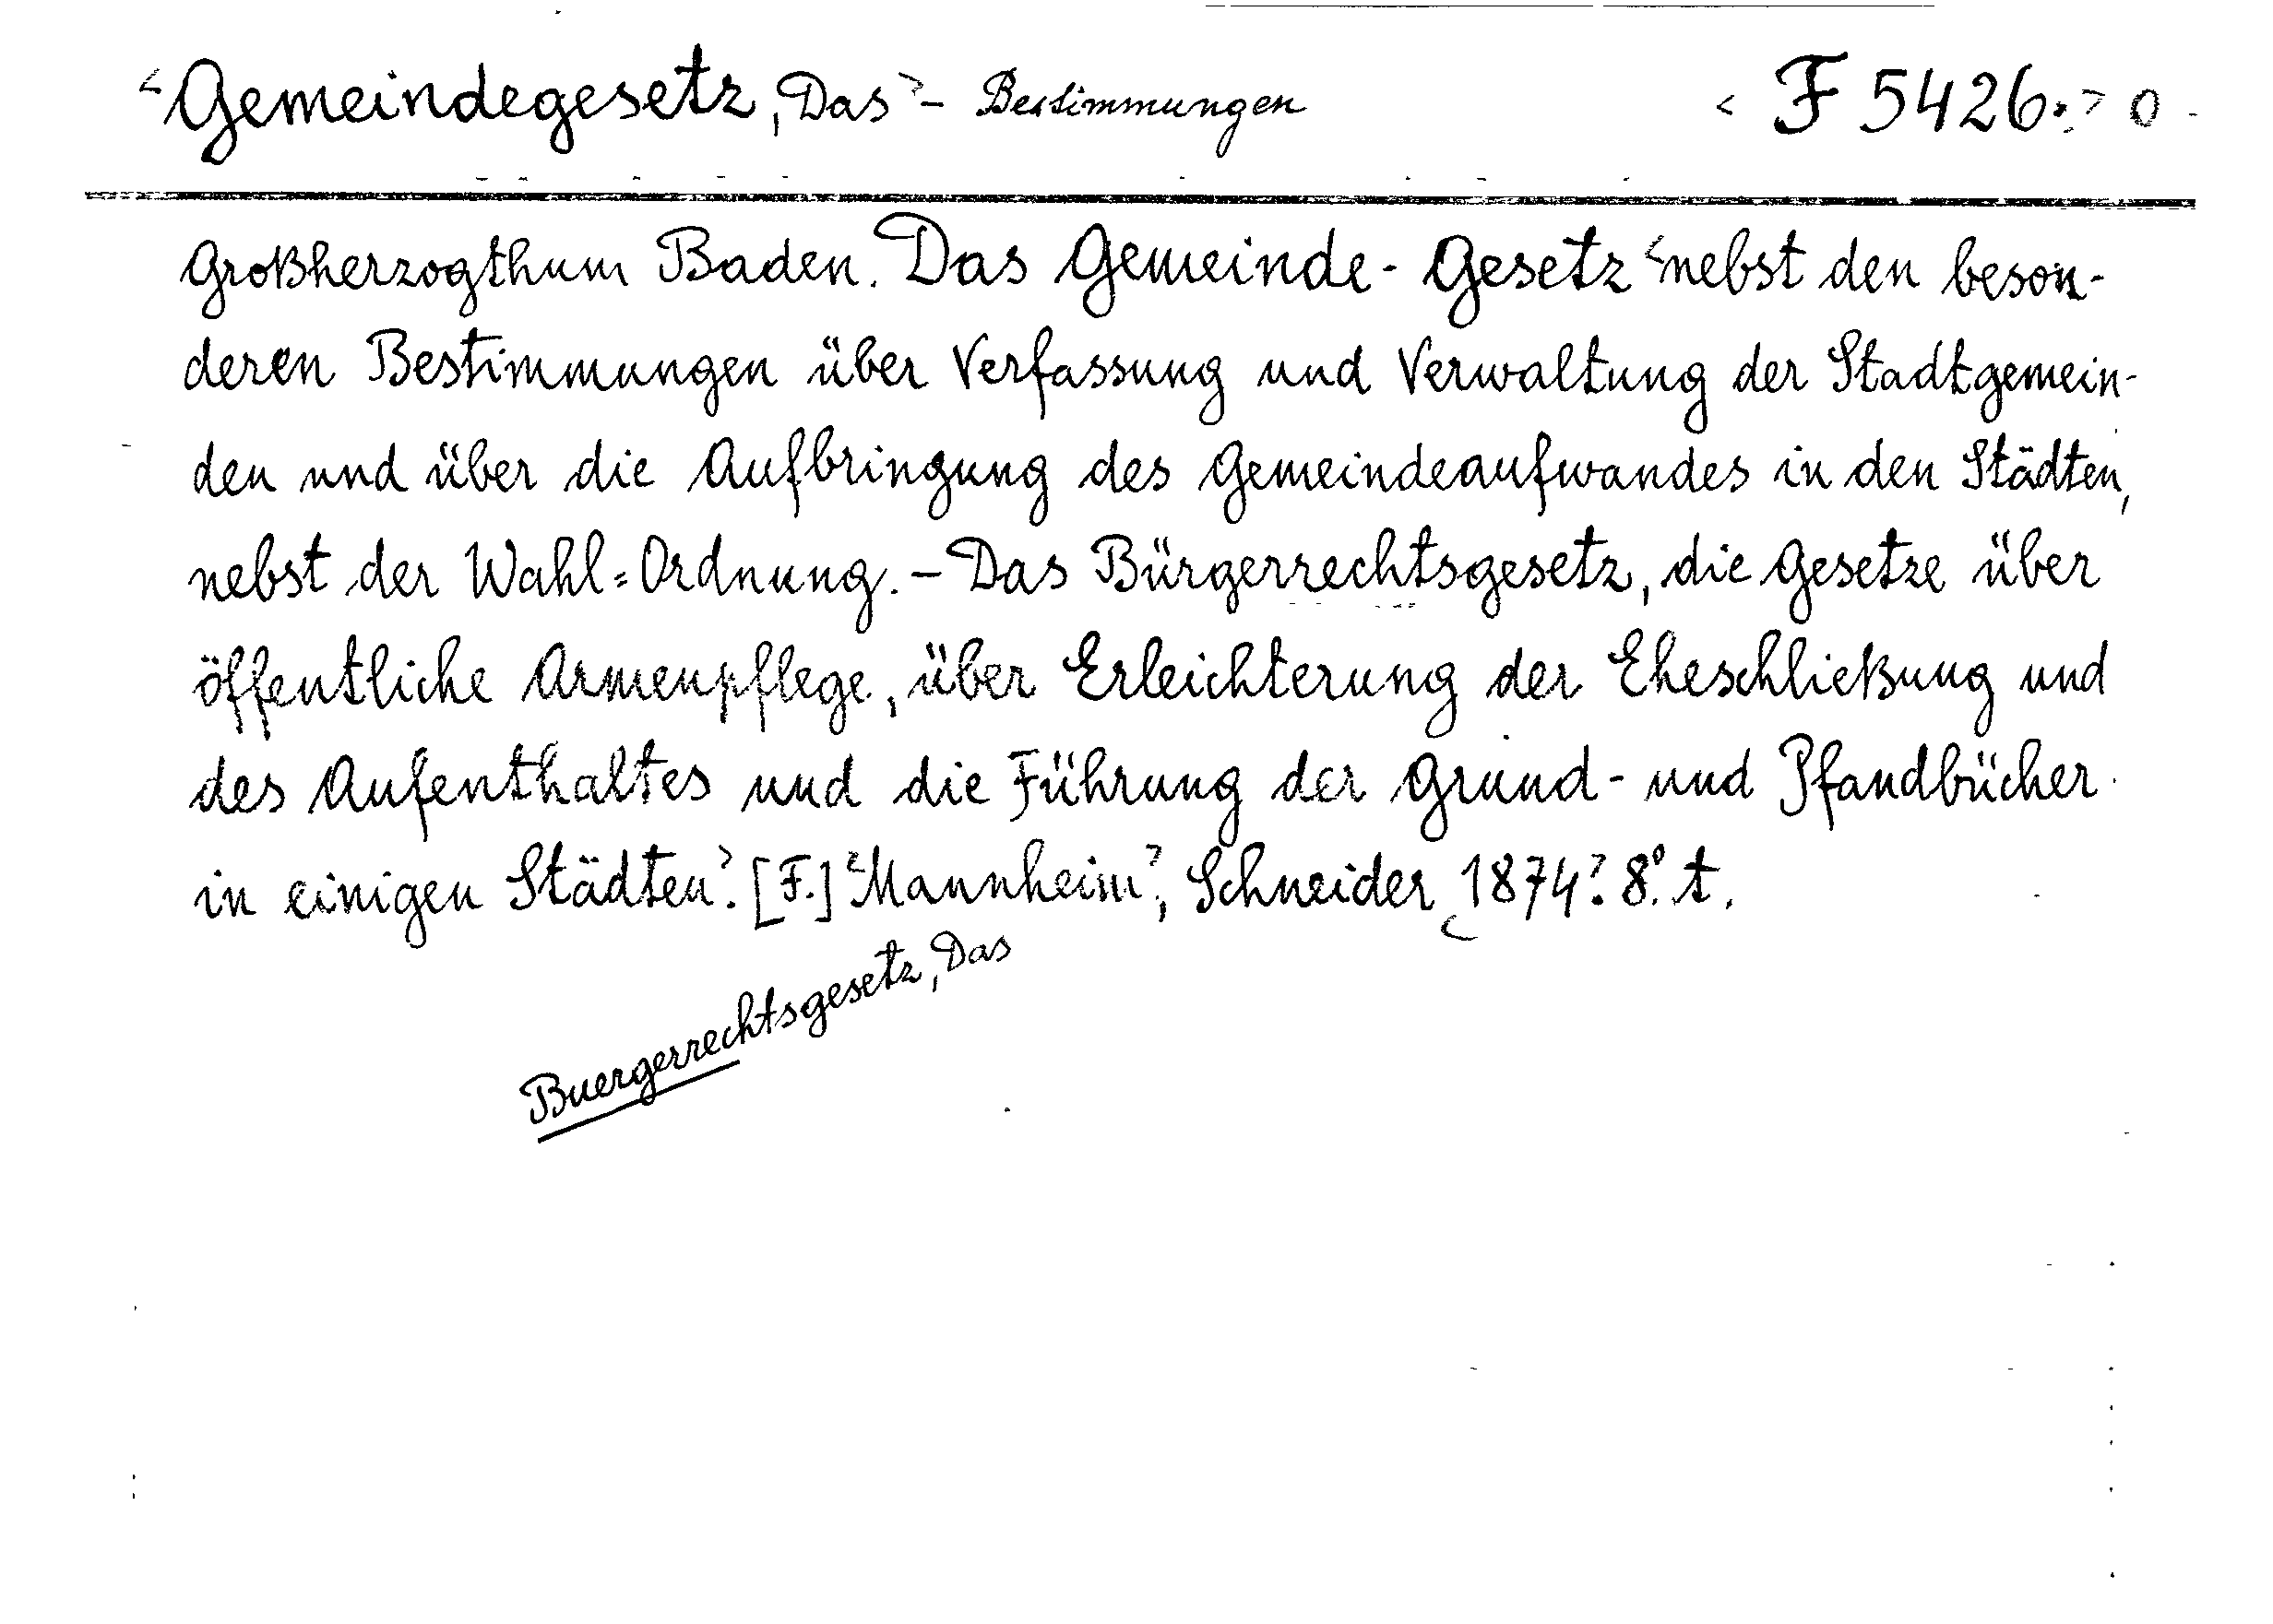 <Gemeindegesetz, Das> - Bestimmungen <F 5426.> 0
Großherzogthum Baden. Das Gemeinde-Gesetz <nebst den beson-
deren Bestimmungen über Verfassung und Verwaltung der Stadtgemein-
den und über die Aufbringung des Gemeindeaufwandes in den Städten,
nebst der Wahl=Ordnung. – Das Bürgerrechtsgesetz, die Gesetze über
öffentliche Armenpflege, über Erleichterung der Eheschließung und
des Aufenthaltes und die Führung der Grund- und Pfandbücher
in einigen Städten>. [F.] <Mannheim>, Schneider <1874>. 8°. t.
Buergerrechtsgesetz, Das